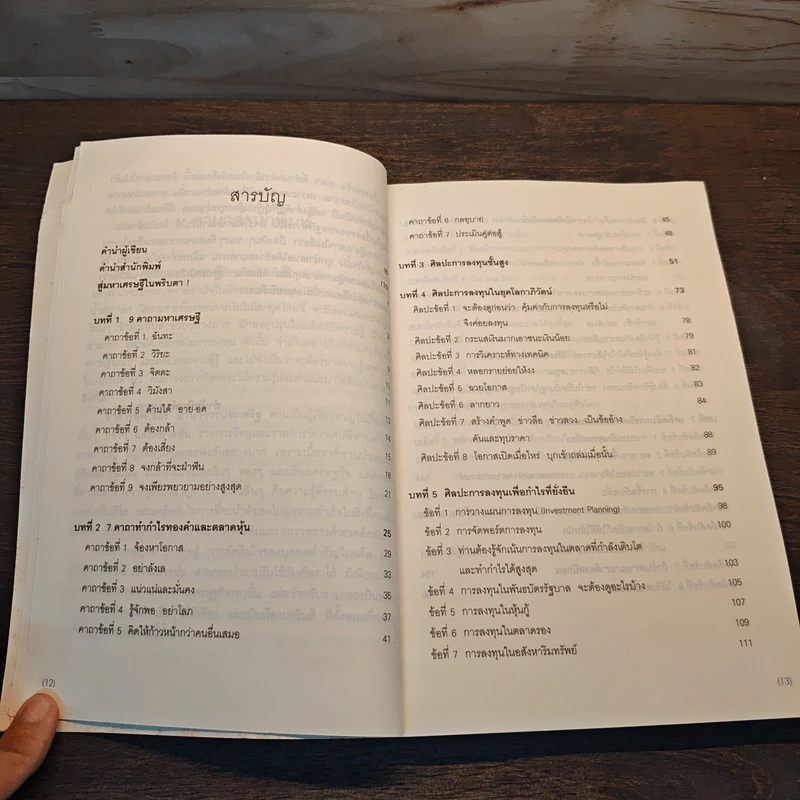 สารบัญ
คำนำผู้เขียน
คำนำสำนักพิมพ์
สู่มหาเศรษฐีในพริบตา !
บทที่ 1 9 คาถามหาเศรษฐี
คาถาข้อที่ 1 ฉันทะ
คาถาข้อที่ 2 วิริยะ
คาถาข้อที่ 3 จิตตะ
คาถาข้อที่ 4 วิมังสา
คาถาข้อที่ 5 ด้านได้ อาย-อด
คาถาข้อที่ 6 ต้องกล้า
คาถาข้อที่ 7 ต้องเสี่ยง
คาถาข้อที่ 8 จงกล้าที่จะฝ่าฟัน 18
คาถาข้อที่ 9 จงเพียรพยายามอย่างสูงสุด 21
บทที่ 2 7 คาถาทำกำไรทองคำและตลาดหุ้น 25
คาถาข้อที่ 1 จ้องหาโอกาส 29
คาถาข้อที่ 2 อย่าลังเล 33
คาถาข้อที่ 3 แน่วแน่และมั่นคง 35
คาถาข้อที่ 4 รู้จักพอ อย่าโลภ 37
คาถาข้อที่ 5 คิดให้ก้าวหน้ากว่าคนอื่นเสมอ 41
(12)
คาถาข้อที่ 6 กลอุบาย 45
คาถาข้อที่ 7 ประเมินคู่ต่อสู้ 48
บทที่ 3 ศิลปะการลงทุนชั้นสูง 51
บทที่ 4 ศิลปะการลงทุนในยุคโลกาภิวัตน์ 73
ศิลปะข้อที่ 1 จะต้องดูก่อนว่า คุ้มค่ากับการลงทุนหรือไม่
จึงค่อยลงทุน 78
ศิลปะข้อที่ 2 กระแสเงินมากเอาชนะเงินน้อย 79
ศิลปะข้อที่ 3 การวิเคราะห์ทางเทคนิค 81
ศิลปะข้อที่ 4 หลอกรายย่อยให้งง 82
ศิลปะข้อที่ 5 ฉวยโอกาส 83
ศิลปะข้อที่ 6 ลากยาว 84
ศิลปะข้อที่ 7 สร้างคำพูด ข่าวลือ ข่าวลวง เป็นข้ออ้าง
ดันและทุบราคา 88
ศิลปะข้อที่ 8 โอกาสเปิดเมื่อไหร่ บุกเข้าถล่มเมื่อนั้น 89
บทที่ 5 ศิลปะการลงทุนเพื่อกำไรที่ยั่งยืน 95
ข้อที่ 1 การวางแผนการลงทุน (Investment Planning) 98
ข้อที่ 2 การจัดพอร์ตการลงทุน 100
ข้อที่ 3 ท่านต้องรู้จักเน้นการลงทุนในตลาดที่กำลังเติบโต
และทำกำไรได้สูงสุด 103
ข้อที่ 4 การลงทุนในพันธบัตรรัฐบาล จะต้องดูอะไรบ้าง 105
ข้อที่ 5 การลงทุนในหุ้นกู้ 107
ข้อที่ 6 การลงทุนในตลาดรอง 109
ข้อที่ 7 การลงทุนในอสังหาริมทรัพย์ 111
(13)